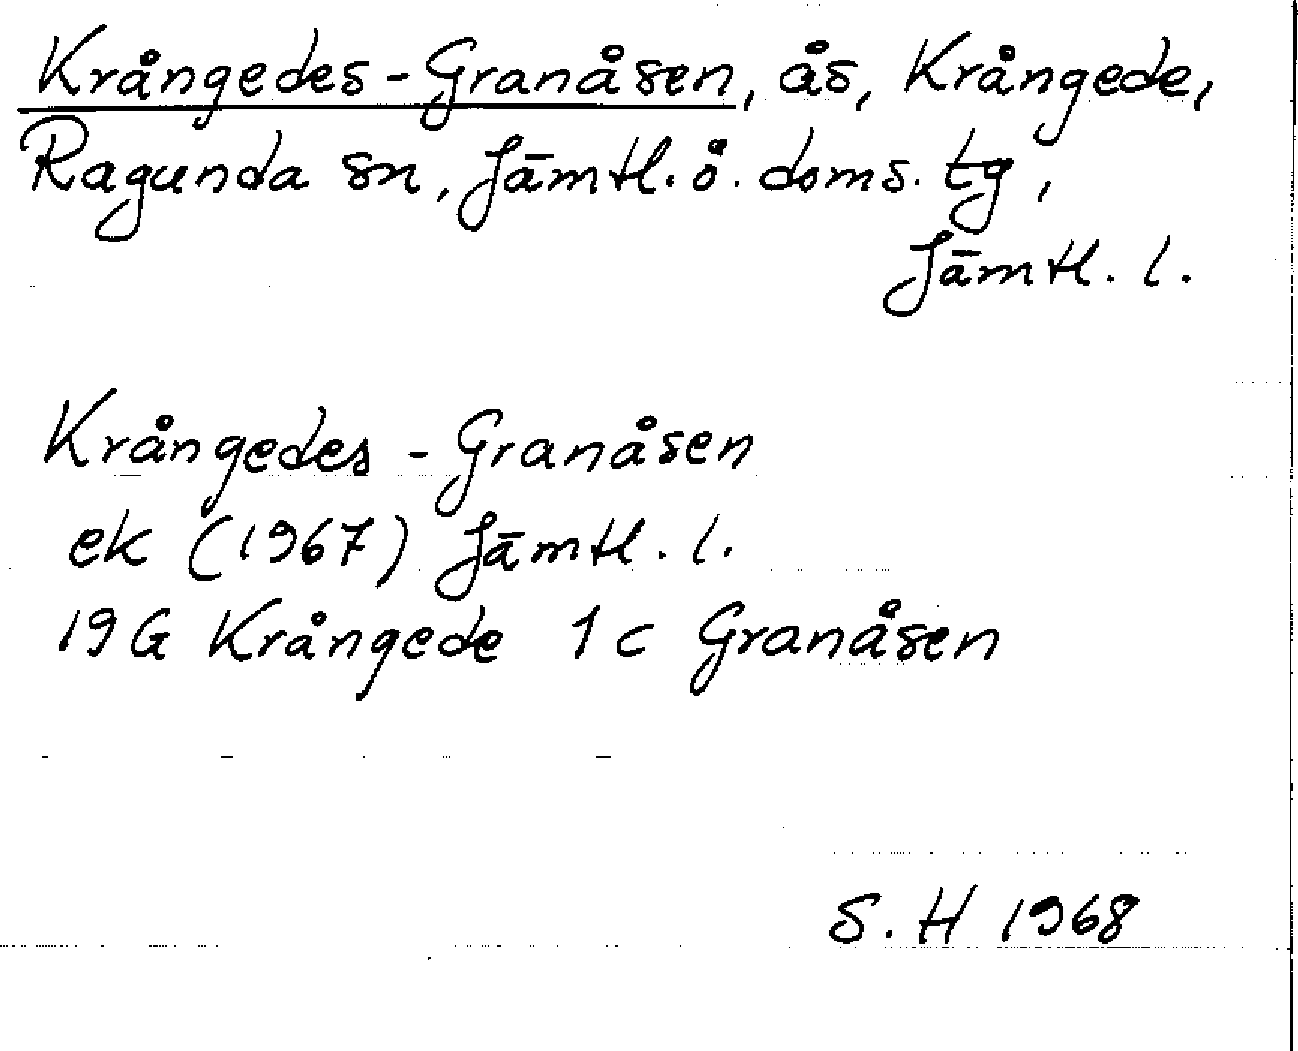 Krångedes-Granåsen, ås, Krångede,
Ragunda sn, Jämtl. ö. doms. tg,
Jämtl. l.
Krångedes - Granåsen
ek (1967) Jämtl. l.
19G Krångede 1c Granåsen
S. H 1968